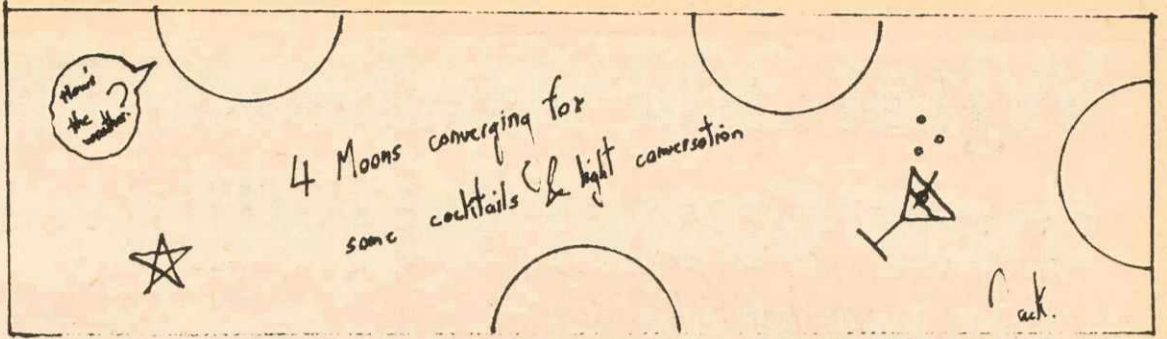 How's
the
weather?
4 Moons converging for
some cocktails & light conversation